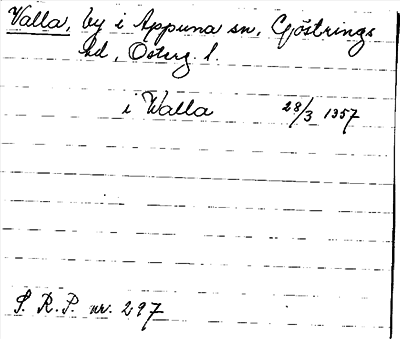 Valla, by i Appuna sn, Göstrings
hd, Österg l.
i Walla 28/3 1357
S. R. P. nr. 297